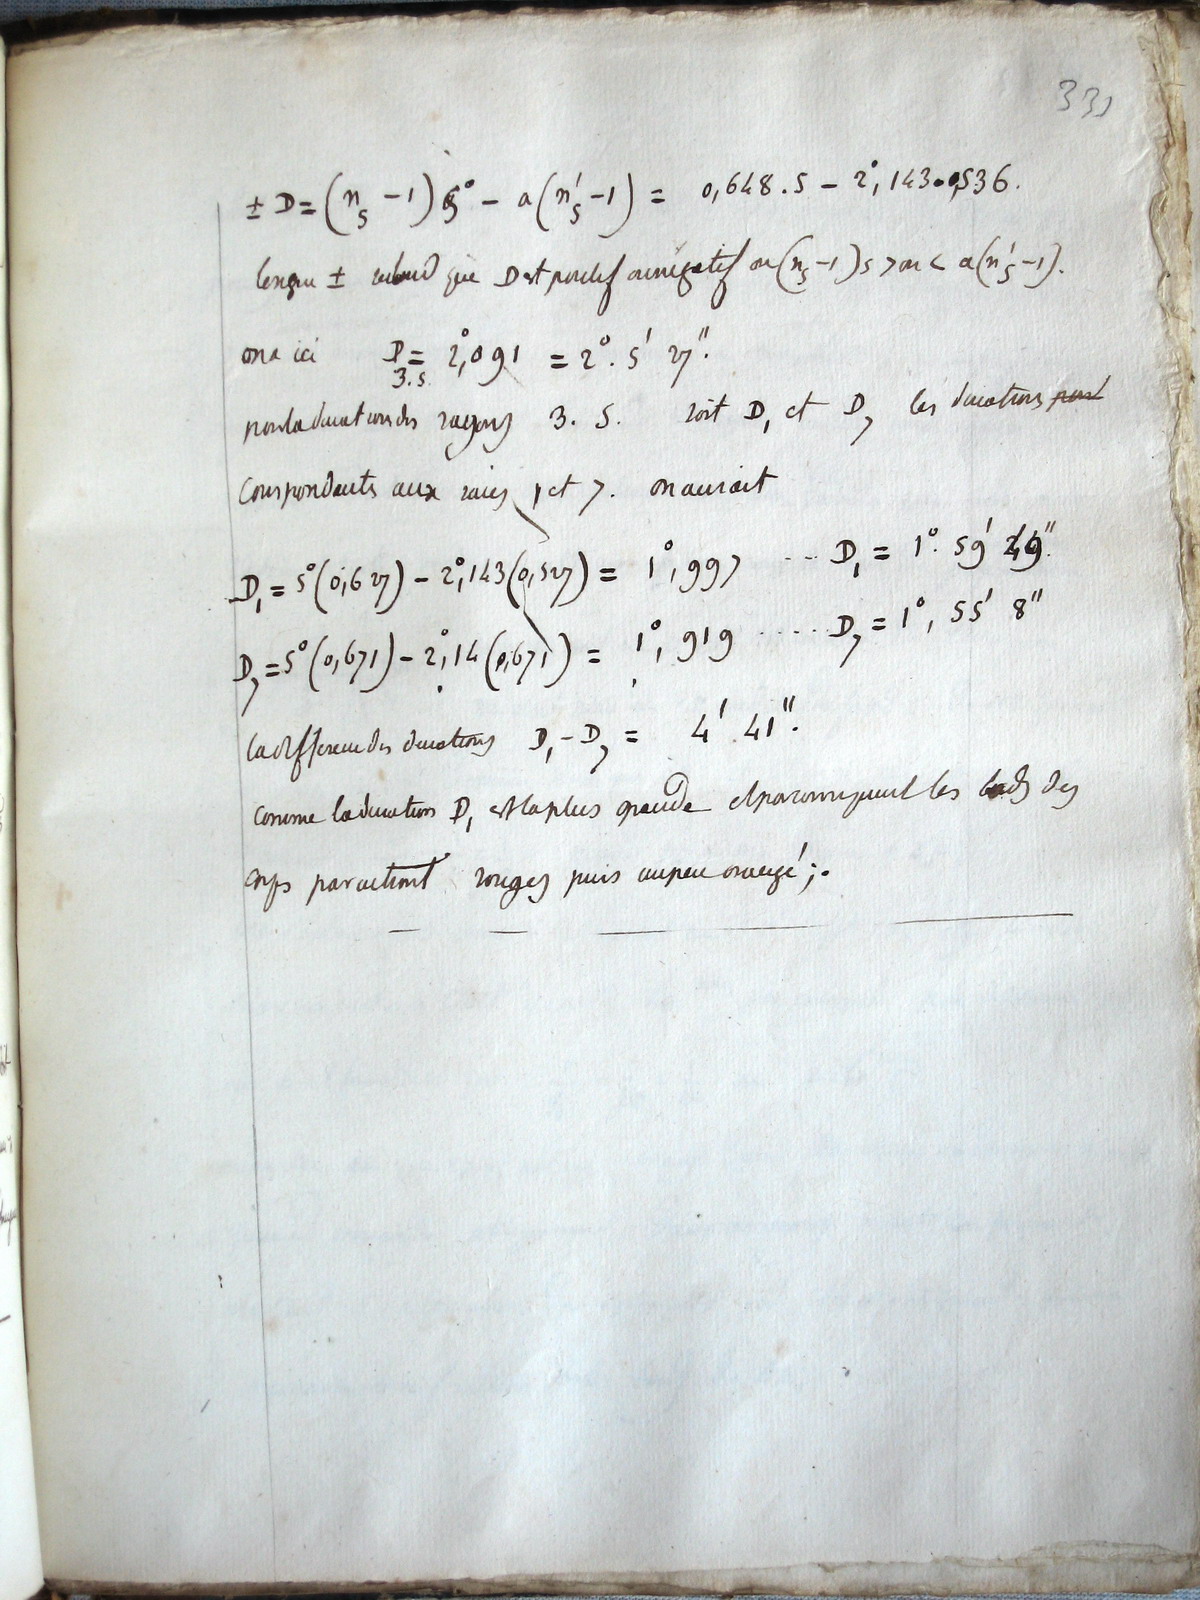 331
± D = (n₅ - 1) 5° - a (n'₅ - 1) = 0,648 . 5 - 2°,143 . 0,536.
le signe ± selon que D est positif ou négatif ou (n₅ - 1) 5 > ou < a (n'₅ - 1).
on a ici D₃.₅ = 2°,091 = 2°. 5' 27".
pour la déviation des rayons 3. 5. soit D₁ et D₇ les déviations
correspondants aux raies 1 et 7. on auroit
D₁ = 5° (0,627) - 2°,143 (0,527) = 1°,997 ... D₁ = 1°. 59' 49".
D₇ = 5° (0,671) - 2°,14 (0,671) = 1°, 919 ..... D₇ = 1°, 55' 8"
la différence des déviations D₁ - D₇ = 4' 41".
comme la déviation D₁ est la plus grande les bords des
corps paroitront rouges puis un peu orangé ;.